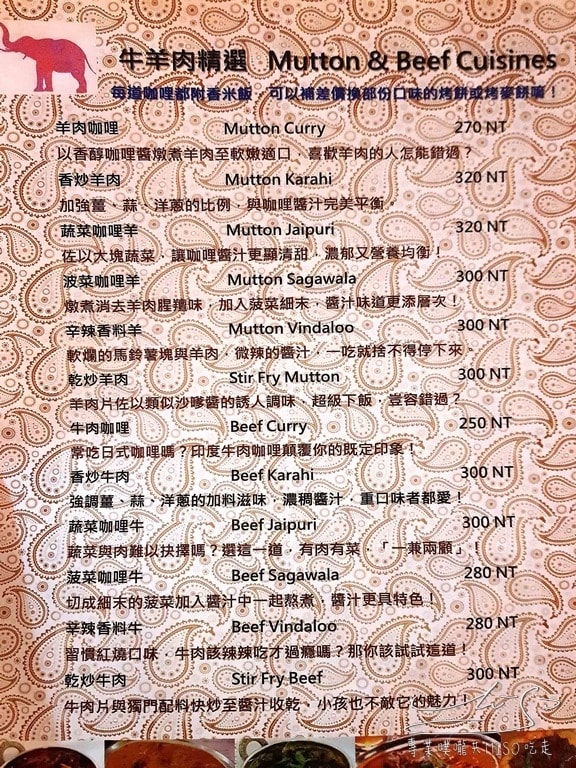 牛羊肉精選 Mutton & Beef Cuisines
每道咖哩都附香米飯，可以補差價換部份口味的烤餅或烤麥餅唷！
羊肉咖哩 Mutton Curry 270 NT
以香醇咖哩醬燉煮羊肉至軟嫩適口，喜歡羊肉的人怎能錯過？
香炒羊肉 Mutton Karahi 320 NT
加強薑、蒜、洋蔥的比例，與咖哩醬汁完美平衡。
蔬菜咖哩羊 Mutton Jaipuri 320 NT
佐以大塊蔬菜，讓咖哩醬汁更顯清甜，濃郁又營養均衡！
菠菜咖哩羊 Mutton Sagawala 300 NT
燉煮消去羊肉腥羶味，加入菠菜細末，醬汁味道更添層次！
辛辣香料羊 Mutton Vindaloo 300 NT
軟爛的馬鈴薯塊與羊肉，微辣的醬汁，一吃就捨不得停下來。
乾炒羊肉 Stir Fry Mutton 300 NT
羊肉片佐以類似沙嗲醬的誘人調味，超級下飯，豈容錯過？
牛肉咖哩 Beef Curry 250 NT
常吃日式咖哩嗎？印度牛肉咖哩顛覆你的既定印象！
香炒牛肉 Beef Karahi 300 NT
強調薑、蒜、洋蔥的加料滋味，濃稠醬汁，重口味者都愛！
蔬菜咖哩牛 Beef Jaipuri 300 NT
蔬菜與肉難以抉擇嗎？選這一道，有肉有菜，「一兼兩顧」！
菠菜咖哩牛 Beef Sagawala 280 NT
切成細末的菠菜加入醬汁中一起熬煮，醬汁更具特色！
辛辣香料牛 Beef Vindaloo 280 NT
習慣紅燒口味，牛肉該辣辣吃才過癮嗎？那你該試試這道！
乾炒牛肉 Stir Fry Beef 300 NT
牛肉片與獨門配料快炒至醬汁收乾、小孩也不敵它的魅力！